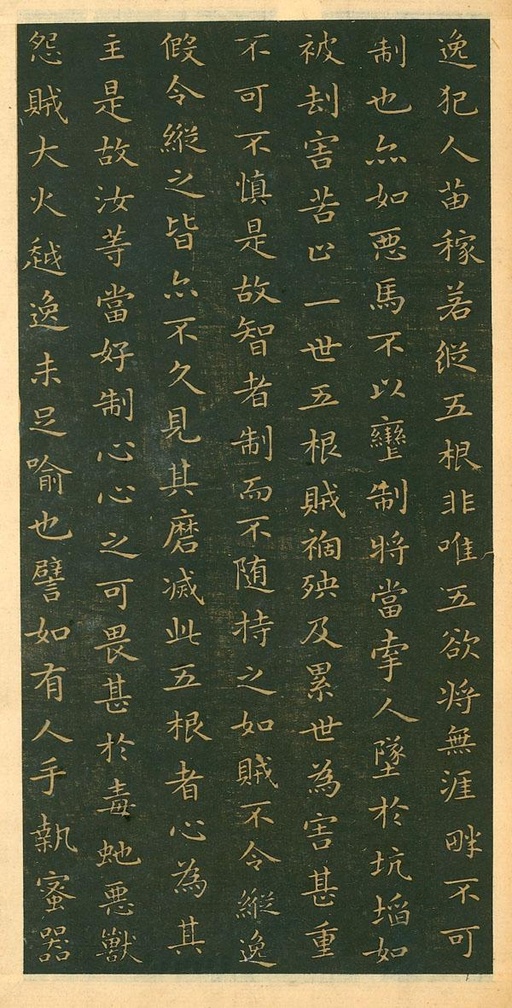 逸犯人苗稼若縱五根非唯五欲将無涯畔不可
制也亦如悪馬不以轡制将當牽人墜於坑埳如
被刧害苦止一世五根賊禍殃及累世為害甚重
不可不慎是故智者制而不随持之如賊不令縱逸
假令縱之皆亦不久見其磨滅此五根者心為其
主是故汝等當好制心心之可畏甚於毒虵悪獸
怨賊大火越逸未足喻也譬如有人手執蜜器